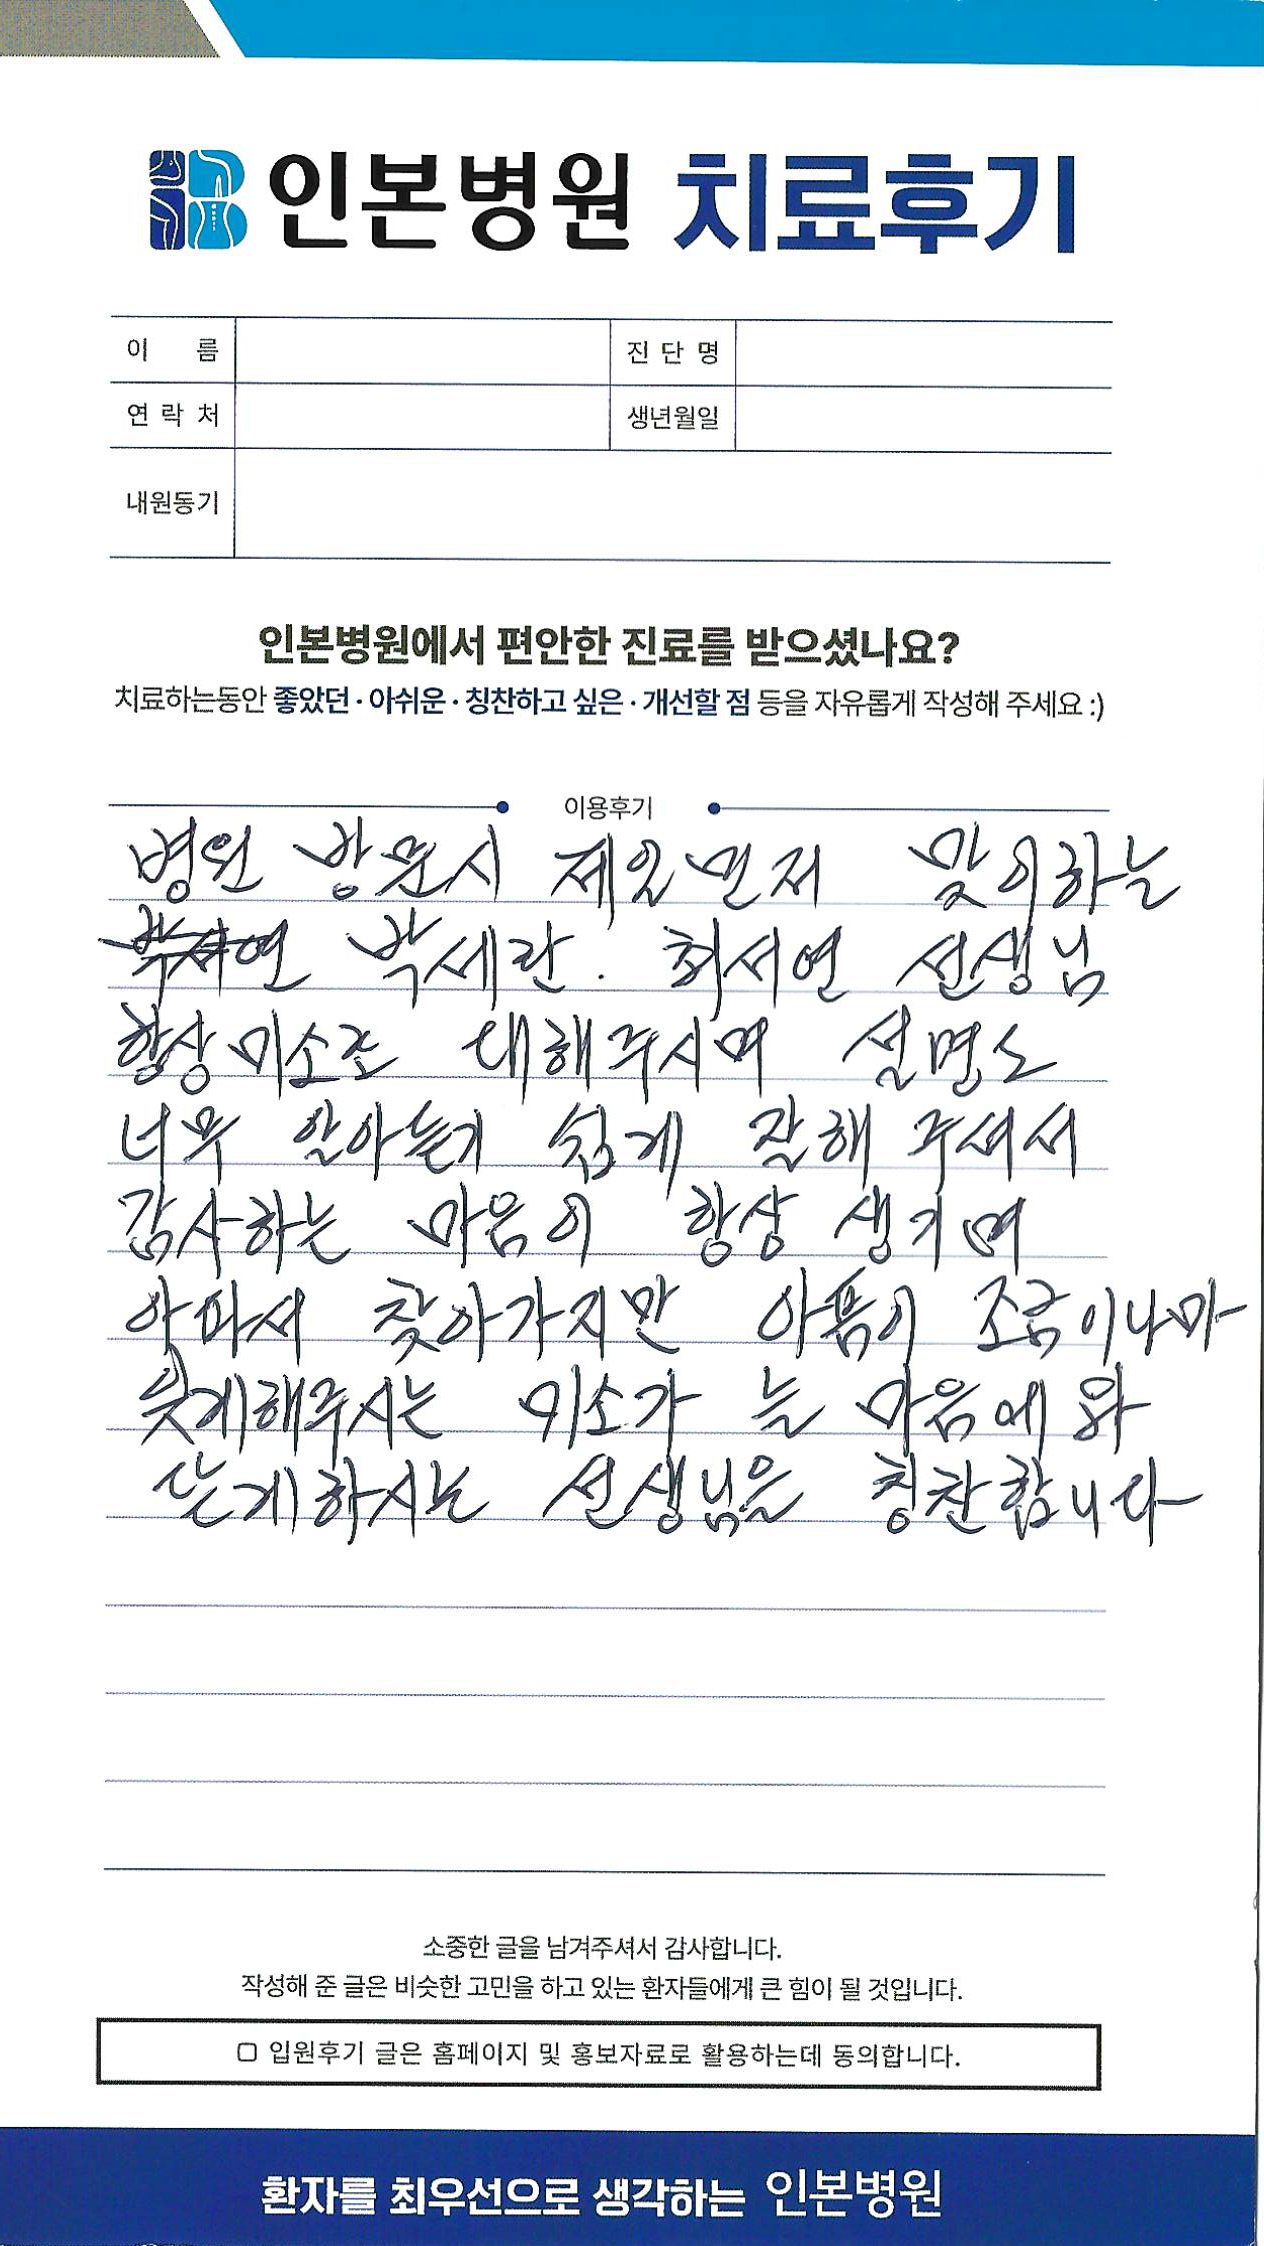 인본병원 치료후기
이 름 진 단 명
연 락 처 생년월일
내원동기
인본병원에서 편안한 진료를 받으셨나요?
치료하는동안 좋았던 · 아쉬운 · 칭찬하고 싶은 · 개선할 점 등을 자유롭게 작성해 주세요 :)
이용후기
병원 방문시 제일먼저 맞이하는
박서연 박세란. 최서연 선생님
항상 미소로 대해주시며 설명도
너무 알아듣기 쉽게 잘해 주셔서
감사하는 마음이 항상 생기며
아파서 찾아가지만 아픔이 조금이나마
웃게해주시는 미소가 늘 마음에 와
닫게하시는 선생님을 칭찬합니다
소중한 글을 남겨주셔서 감사합니다.
작성해 준 글은 비슷한 고민을 하고 있는 환자들에게 큰 힘이 될 것입니다.
□ 입원후기 글은 홈페이지 및 홍보자료로 활용하는데 동의합니다.
환자를 최우선으로 생각하는 인본병원